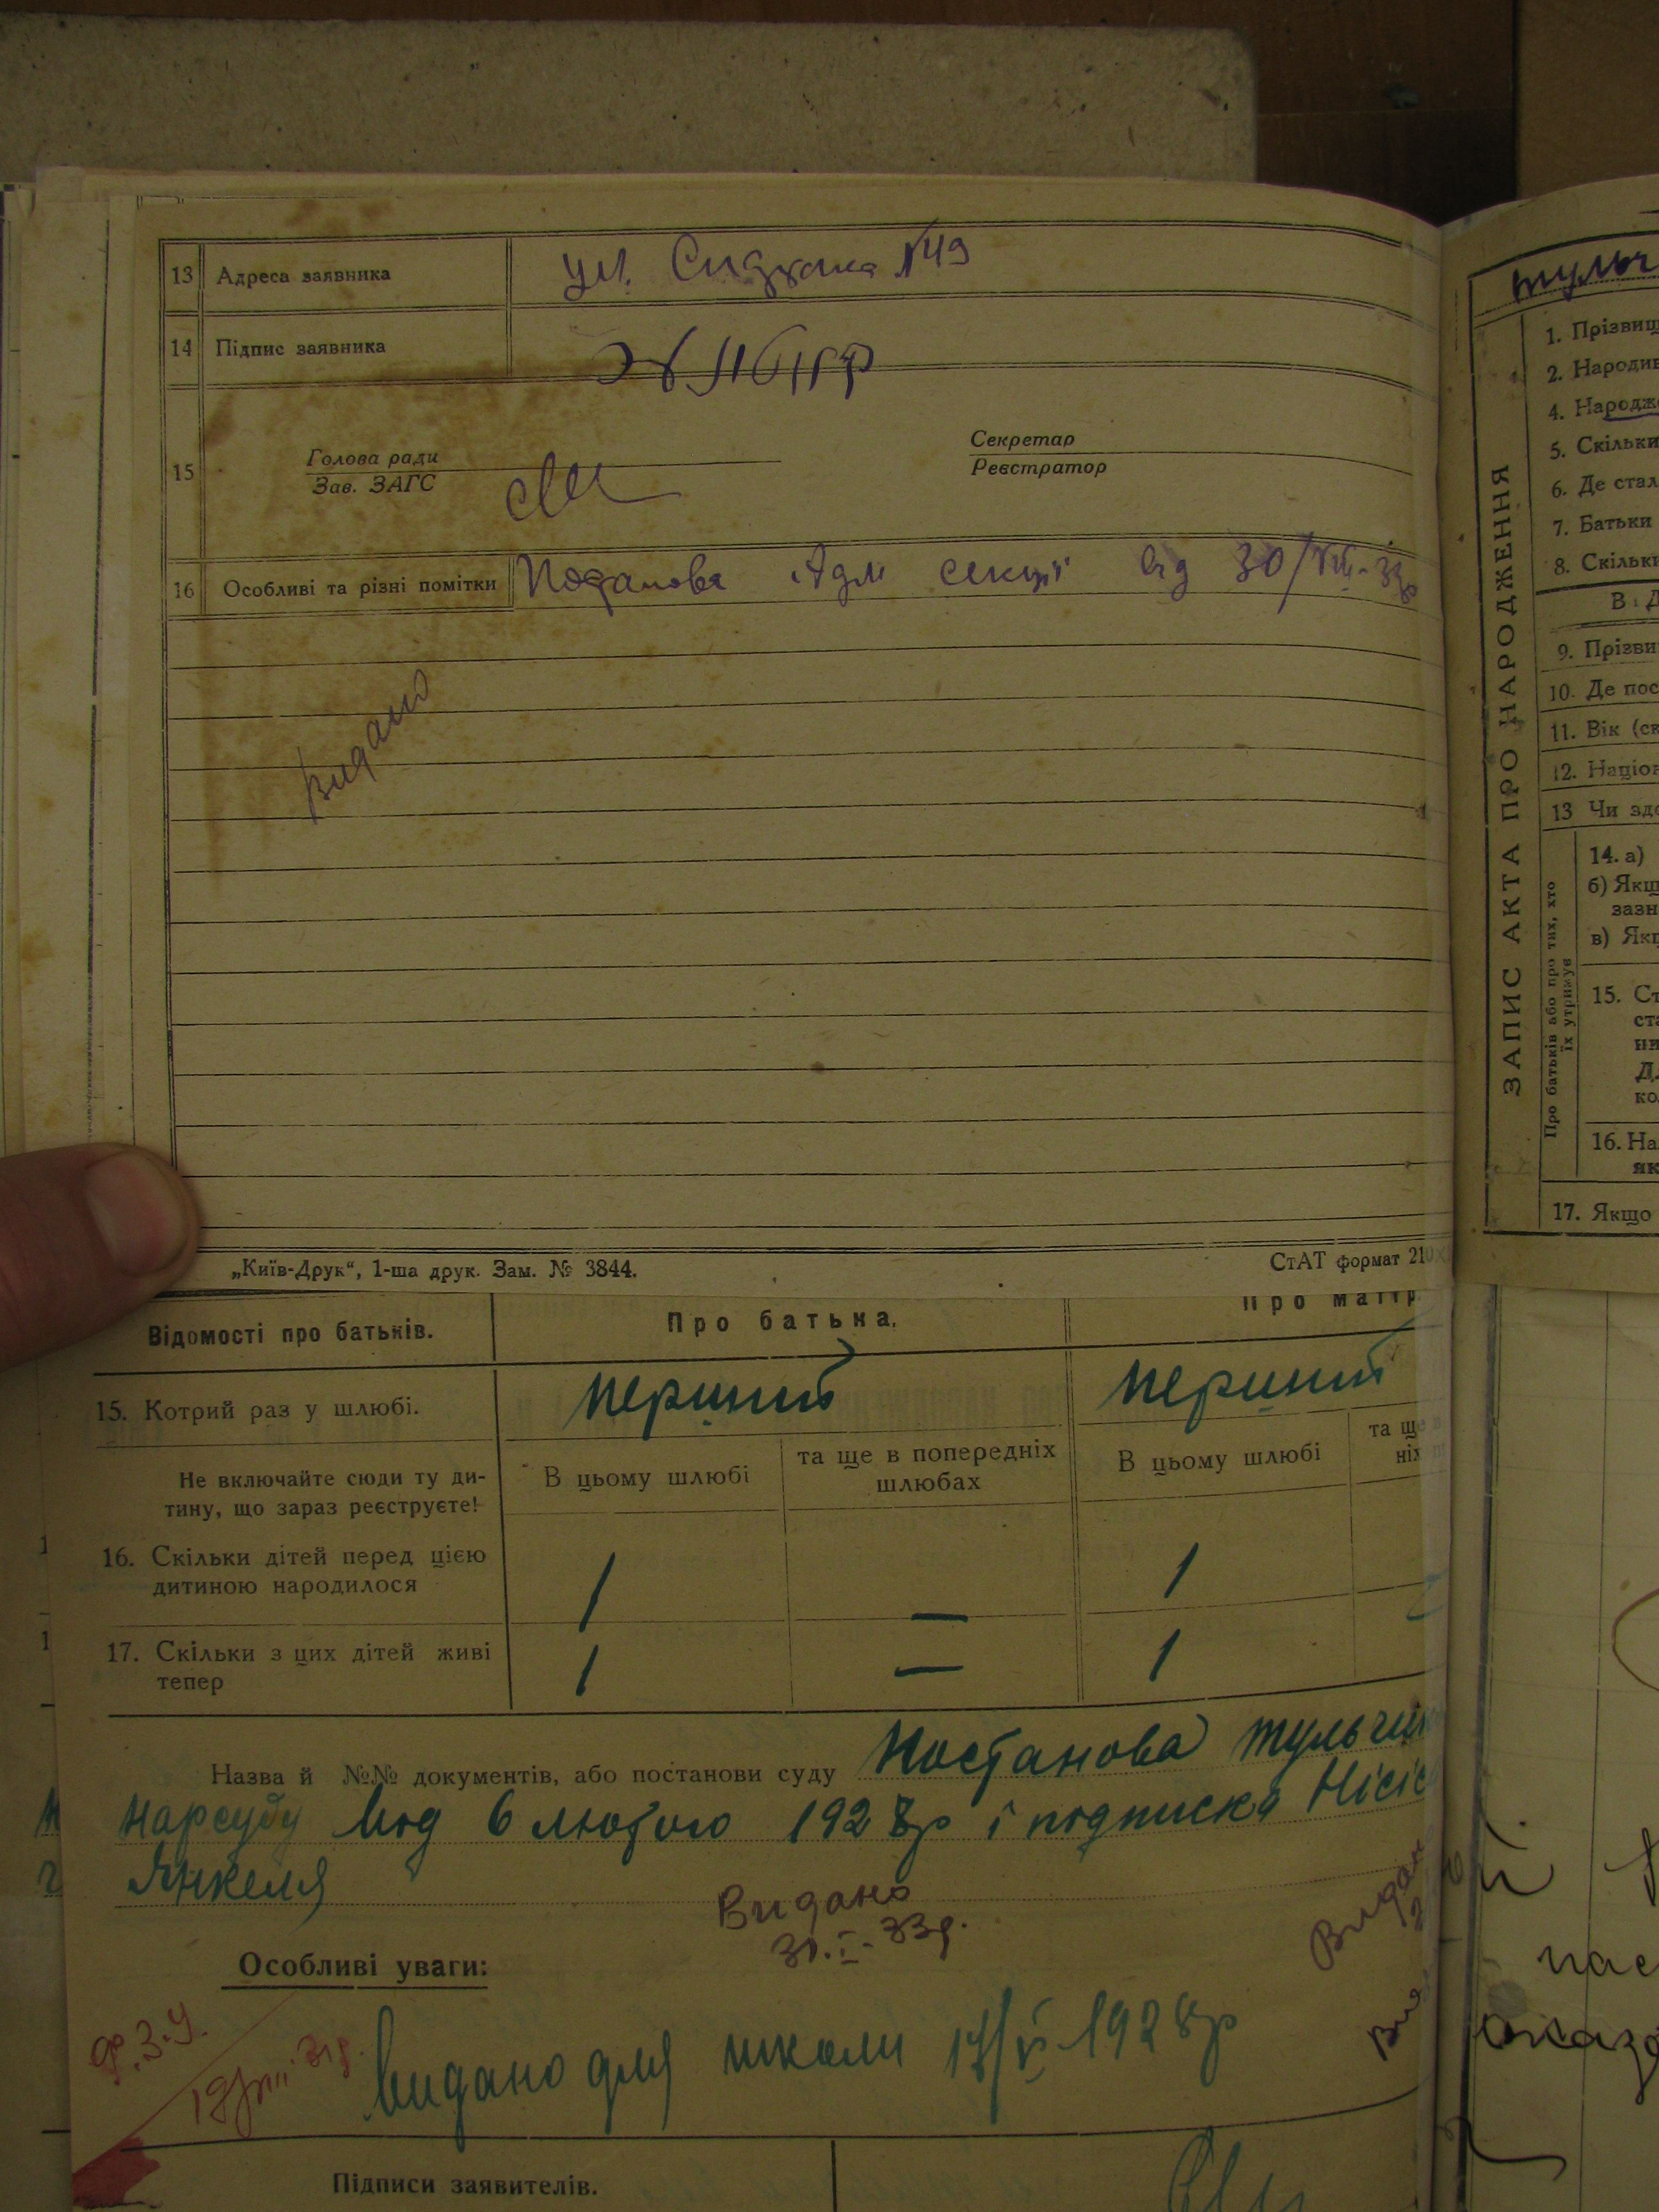 13 Адреса заявника ул. №49
14 Підпис заявника
15 Голова ради
Зав. ЗАГС
Секретар
Реєстратор
16 Особливі та різні помітки Постанова Адм секції від 30/VIII-33р
Видано
„Київ-Друк“, 1-ша друк. Зам. № 3844.
СтАТ формат 210
Відомості про батьків.
Про батька.
Про матір
15. Котрий раз у шлюбі.
перший
перший
Не включайте сюди ту ди-
тину, що зараз реєструєте!
В цьому шлюбі
та ще в попередніх
шлюбах
В цьому шлюбі
та ще
ніх
16. Скільки дітей перед цією
дитиною народилося
1 — 1
17. Скільки з цих дітей живі
тепер
1 — 1
Назва й №№ документів, або постанови суду Постанова Тульчин
нарсуду від 6 лютого 1928р і подписка
Янкеля
Видано
31.I-33р.
Видан
Особливі уваги:
Ф.З.У.
видано для школи 17/V-1928р
Підписи заявителів.
ЗАПИС АКТА ПРО НАРОДЖЕННЯ
Тульч
1. Прізвищ
2. Народив
4. Народж
5. Скільки
6. Де стал
7. Батьки
8. Скільки
В і Д
9. Прізви
10. Де пос
11. Вік (ск
12. Націон
13 Чи здо
Про батьків або про тих, хто
їх утримує
14. а)
б) Якщ
зазн
в) Якщ
15. Ст
ста
ни
Д
ко
16. На
як
17. Якщо